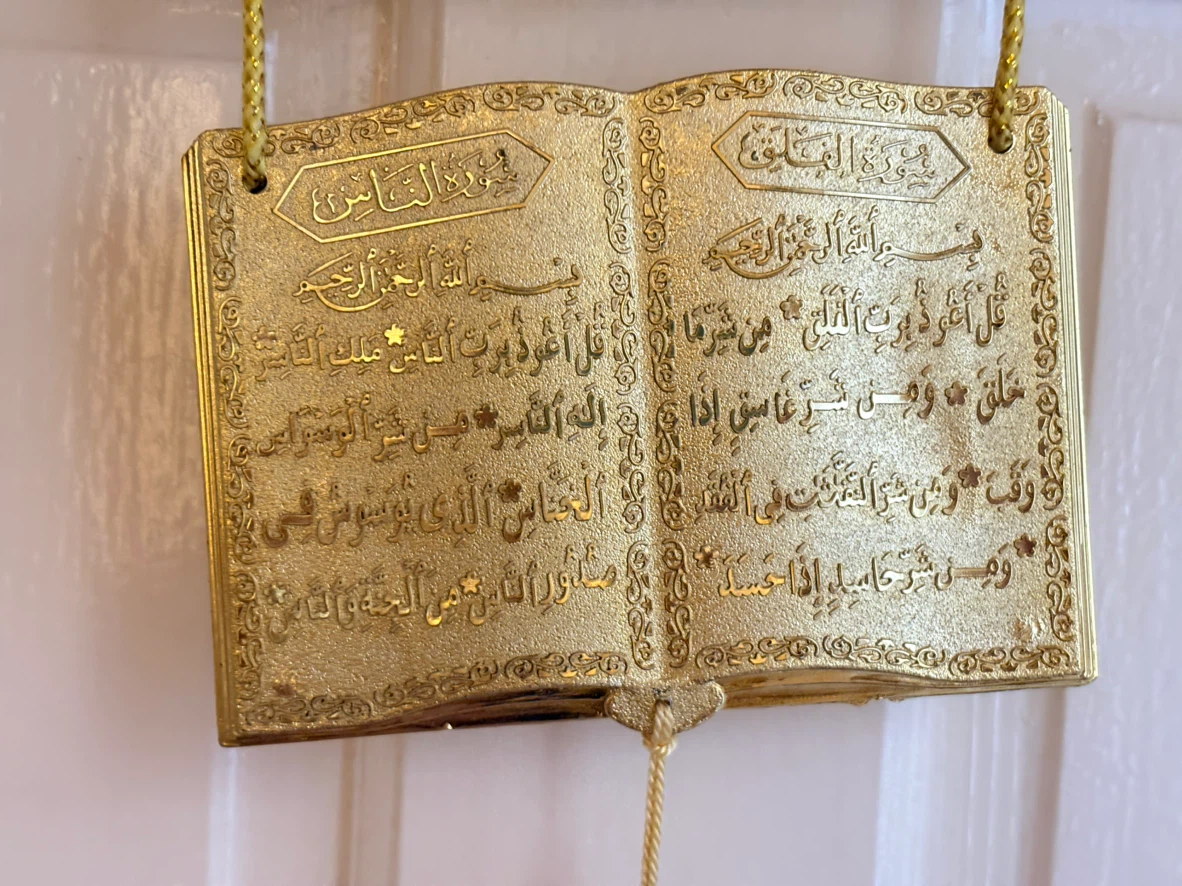 سُورَةُ الْفَلَقِ
بِسْمِ ٱللَّهِ ٱلرَّحْمَٰنِ ٱلرَّحِيمِ
قُلْ أَعُوذُ بِرَبِّ ٱلْفَلَقِ * مِن شَرِّ مَا
خَلَقَ * وَمِن شَرِّ غَاسِقٍ إِذَا
وَقَبَ * وَمِن شَرِّ ٱلنَّفَّٰثَٰتِ فِى ٱلْعُقَدِ
* وَمِن شَرِّ حَاسِدٍ إِذَا حَسَدَ *
سُورَةُ النَّاسِ
بِسْمِ ٱللَّهِ ٱلرَّحْمَٰنِ ٱلرَّحِيمِ
قُلْ أَعُوذُ بِرَبِّ ٱلنَّاسِ * مَلِكِ ٱلنَّاسِ *
إِلَٰهِ ٱلنَّاسِ * مِن شَرِّ ٱلْوَسْوَاسِ
ٱلْخَنَّاسِ * ٱلَّذِى يُوَسْوِسُ فِى
صُدُورِ ٱلنَّاسِ * مِنَ ٱلْجِنَّةِ وَٱلنَّاسِ *